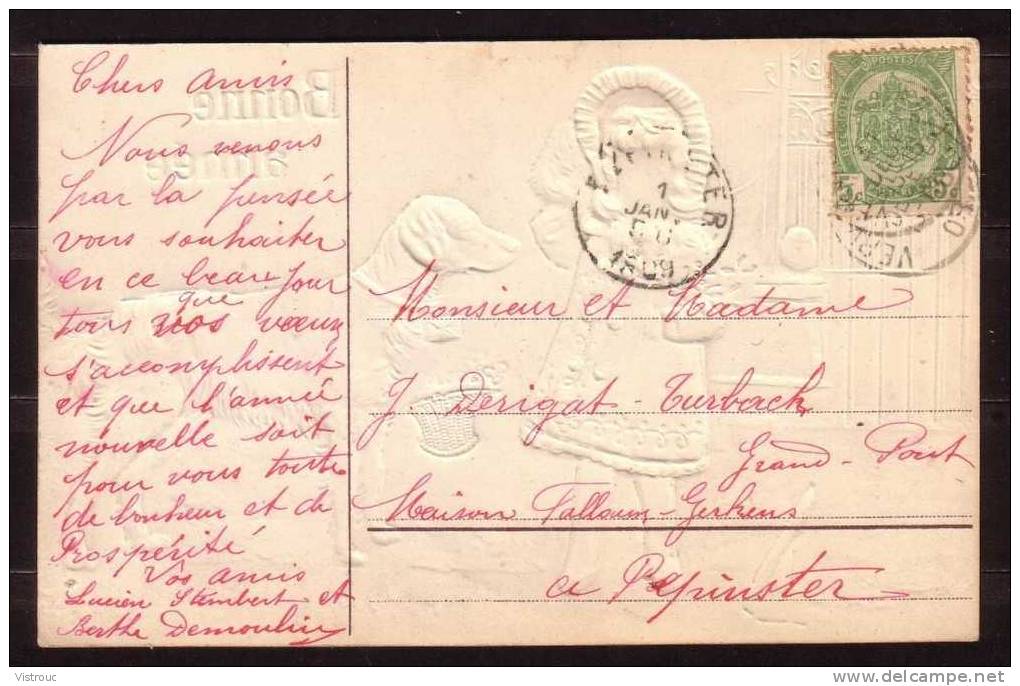 Chers amis
Nous venons
par la pensée
vous souhaiter
en ce beau jour
que
tous vos vœux
s'accomplissent
et que l'année
nouvelle soit
pour vous toute
de bonheur et de
Prospérité
Vos amis
Lucien Stembert et
Berthe Demoulin
Bonne
année
POSTES
1
JANV
1909
Monsieur et Madame
J. Derigat-Turback
Grand-Pont
Maison Gerkens
a Pepinster
Vistrouc
delcampe.net